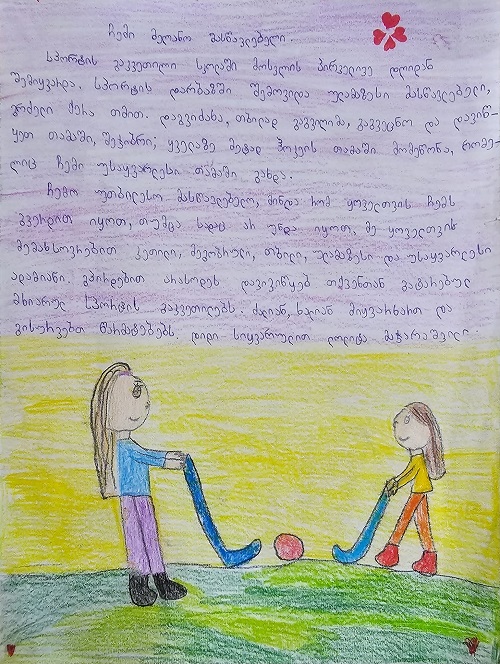 ჩემი მელანო მასწავლებელი.
სპორტის გაკვეთილი სკოლაში მოსვლის პირველივე დღიდან
შემიყვარდა. სპორტის დარბაზში შემოვიდა ულამაზესი მასწავლებელი,
გრძელი ქერა თმით. დაგვიძახა, თბილად გაგვიღიმა, გაგვეცნო და დავიწ-
ყეთ თამაში, შეჯიბრი; ყველაზე მეტად ჰოკეის თამაში მომეწონა, რომე-
ლიც ჩემი უსაყვარლესი თამაში გახდა.
ჩემო უთბილესო მასწავლებელო, მინდა რომ ყოველთვის ჩემს
გვერდით იყოთ, თუმცა სადაც არ უნდა იყოთ, მე ყოველთვის
მემახსოვრებით კეთილი, მეგობრული, თბილი, ულამაზესი და უსაყვარლესი
ადამიანი. გპირდებით არასოდეს დავივიწყებ თქვენთან გატარებულ
მხიარულ სპორტის გაკვეთილებს. ძალიან, ძალიან მიყვარხართ და
გისურვებთ წარმატებებს. დიდი სიყვარულით ლილიტა მაჭარაშვილი.